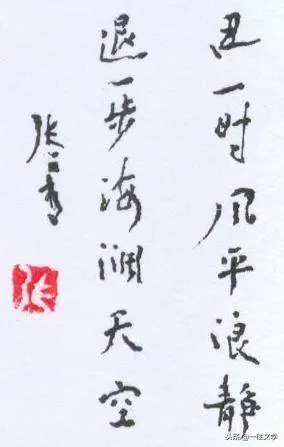 忍一时风平浪静
退一步海阔天空
张
头条@一往文学